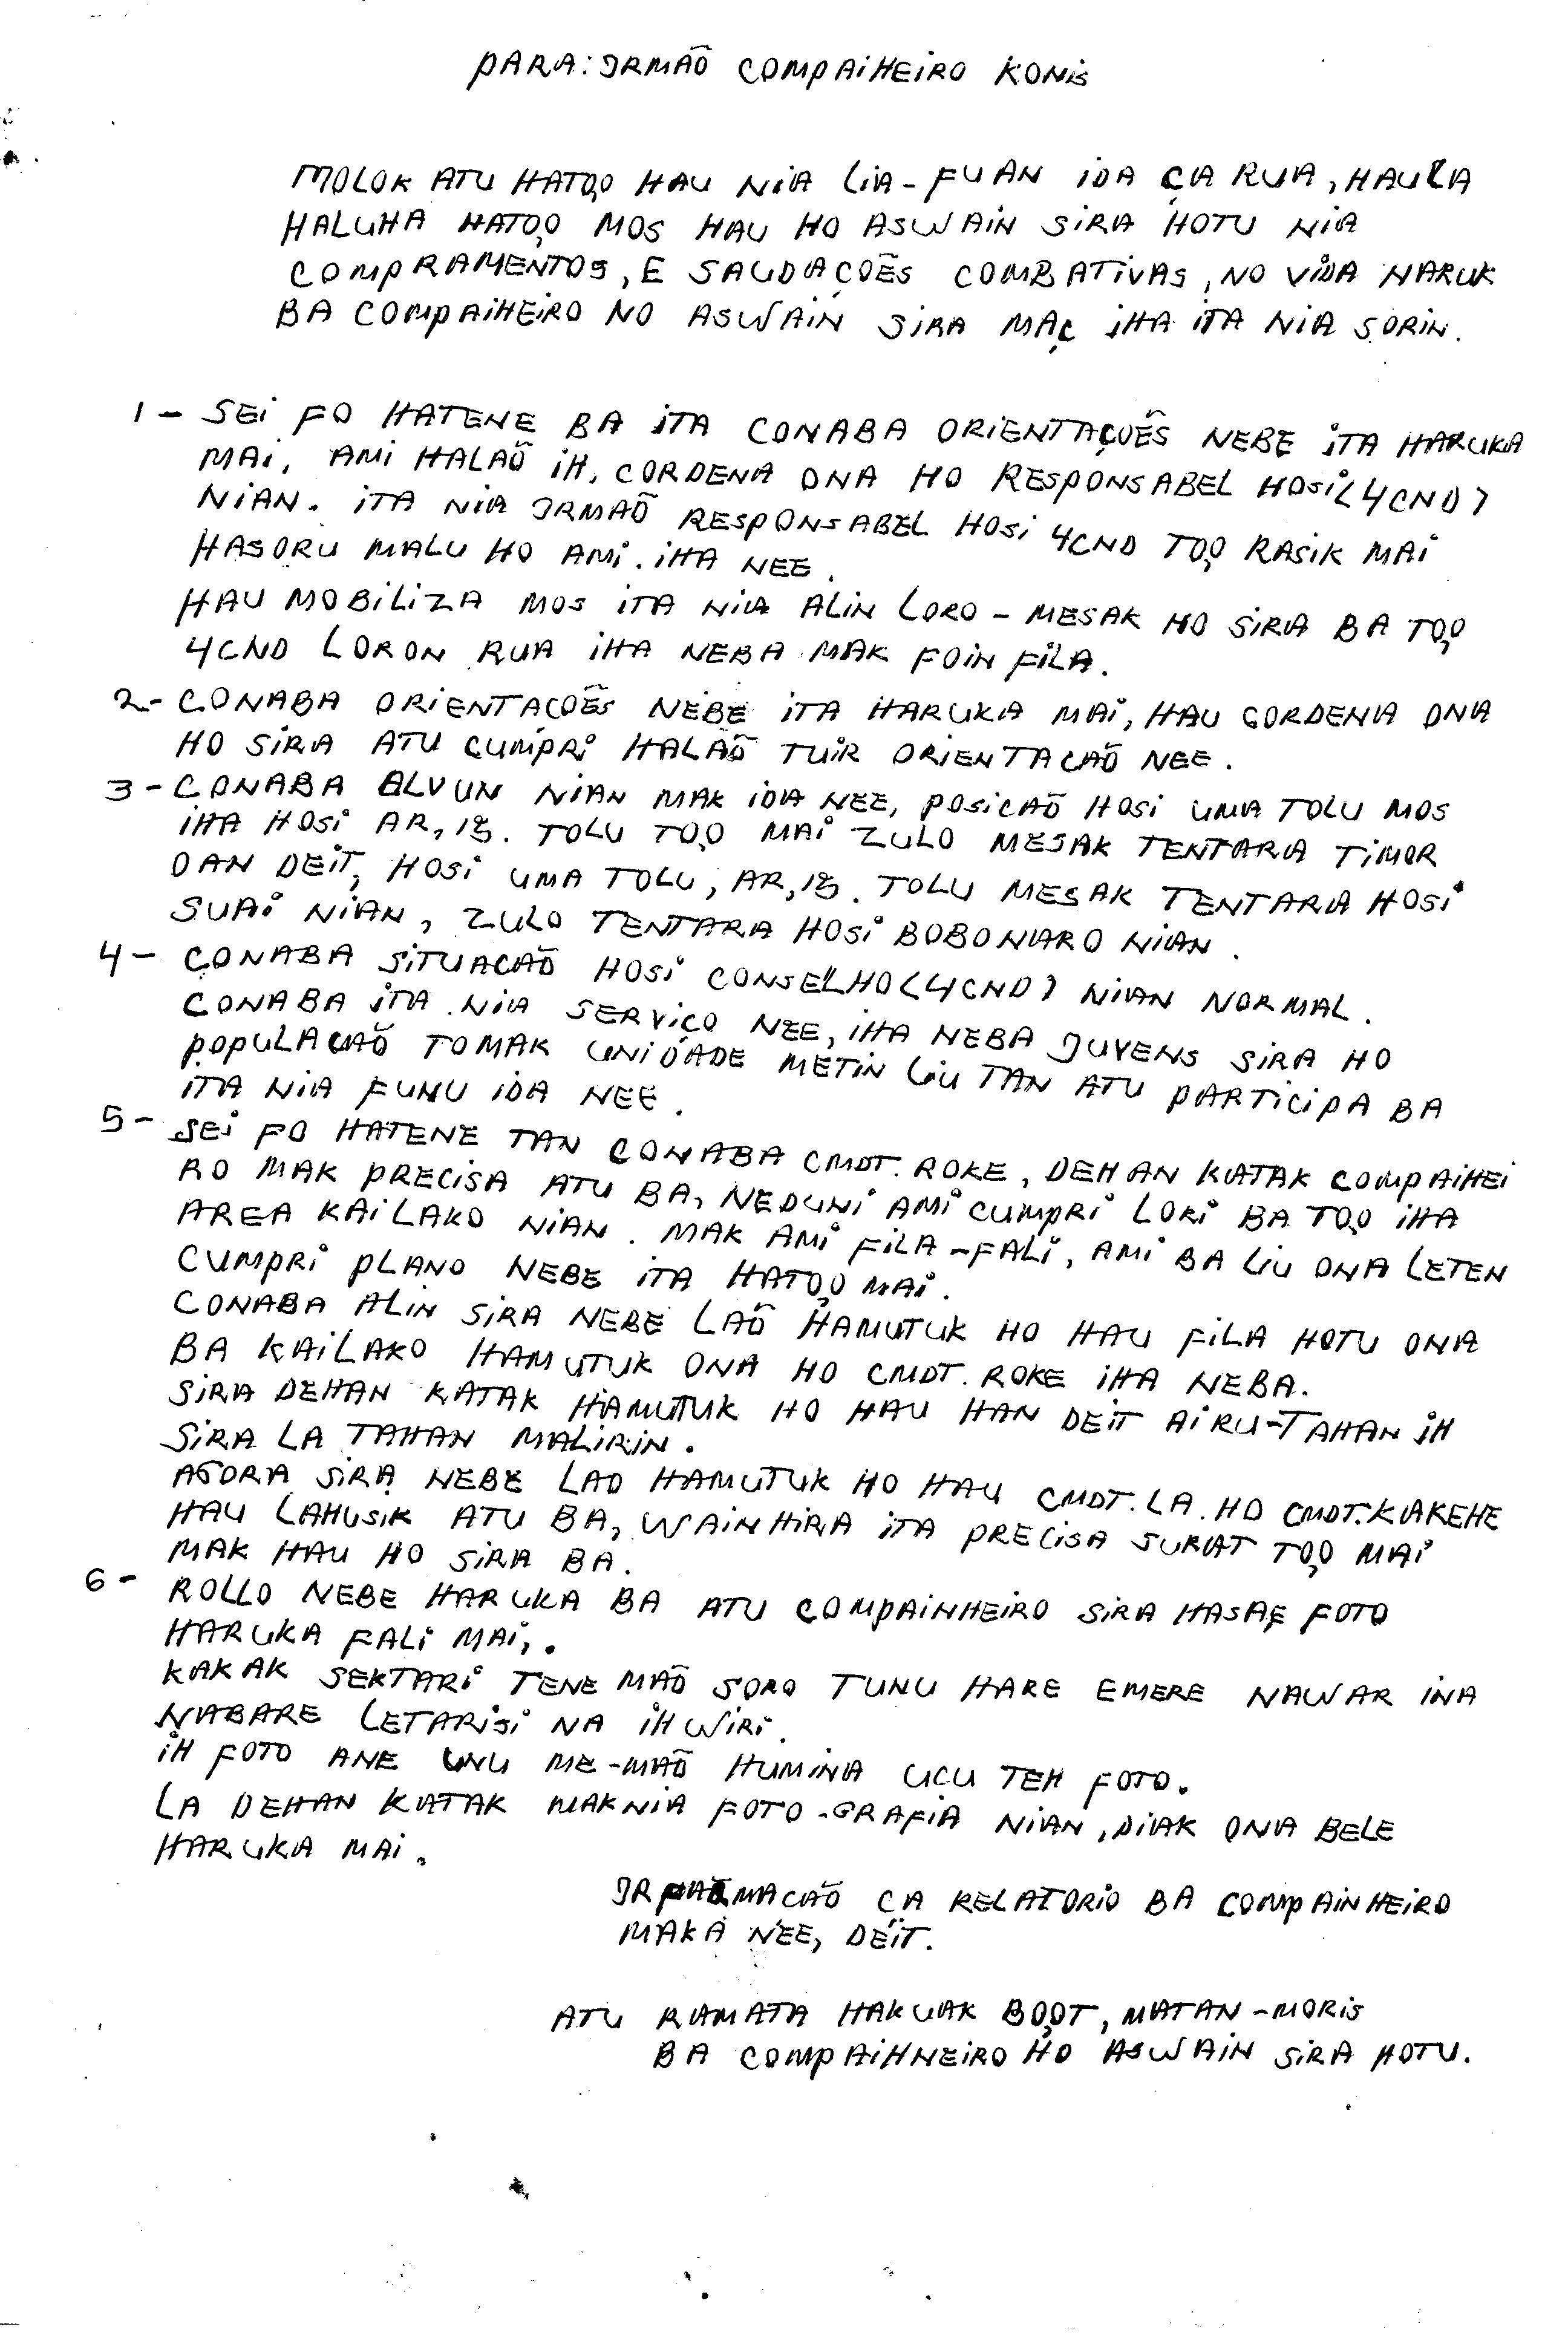 PARA: IRMAÕ COMPAIHEIRO KONIS
MOLOK ATU HATO,O HAU NIA LIA-FUAN IDA ÇA RUA, HAU LA
HALUHA HATO,O MOS HAU HO ASWAIN SIRA HOTU NIA
COMPRAMENTOS, E SAUDAÇOÊS COMBATIVAS, NO VIDA NARUK
BA COMPAIHEIRO NO ASWAIN SIRA MAÇ IHA ITA NIA SORIN.
1 - SEI FO HATENE BA ITA CONABA ORIENTAÇOÊS NEBE ITA HARUKA
MAI, AMI HALAÕ IH, CORDENA ONA HO RESPONSABEL HOSI (4CND)
NIAN. ITA NIA IRMAÕ RESPONSABEL HOSI 4CND TO,O RASIK MAI
HASORU MALU HO AMI. IHA NEE.
HAU MOBILIZA MOS ITA NIA ALIN LORO-MESAK HO SIRA BA TO,O
4CND LORON RUA IHA NEBA MAK FOIN FILA.
2- CONABA ORIENTACOÊS NEBE ITA HARUKA MAI, HAU CORDENA ONA
HO SIRA ATU CUMPRI HALAÕ TUIR ORIENTACAÕ NEE.
3 - CONABA ALVUN NIAN MAK IDA NEE, POSICAÕ HOSI UMA TOLU MOS
IHA HOSI AR,18. TOLU TO,O MAI ZULO MESAK TENTARA TIMOR
OAN DEIT, HOSI UMA TOLU, AR,18. TOLU MESAK TENTARA HOSI
SUAI NIAN, ZULO TENTARA HOSI BOBONARO NIAN.
4 - CONABA SITUACAÕ HOSI CONSELHO (4CND) NIAN NORMAL.
CONABA ITA NIA SERVIÇO NEE, IHA NEBA JUVENS SIRA HO
POPULACAÕ TOMAK UNIDADE METIN LIU TAN ATU PARTICIPA BA
ITA NIA FUNU IDA NEE.
5 - SEI FO HATENE TAN CONABA CMDT. ROKE, DEHAN KATAK COMPAIHEI
RO MAK PRECISA ATU BA, NEDUNI AMI CUMPRI LORI BA TO,O IHA
AREA KAILAKO NIAN. MAK AMI FILA-FALI, AMI BA LIU ONA LETEN
CUMPRI PLANO NEBE ITA HATO,O MAI.
CONABA ALIN SIRA NEBE LAÕ HAMUTUK HO HAU FILA HOTU ONA
BA KAILAKO HAMUTUK ONA HO CMDT. ROKE IHA NEBA.
SIRA DEHAN KATAK HAMUTUK HO HAU HAN DEIT AI RU-TAHAN IH
SIRA LA TAHAN MALIRIN.
AGORA SIRA NEBE LAO HAMUTUK HO HAU CMDT. LA. HO CMDT. KAKEHE
HAU LAHUSIK ATU BA, WAINHIRA ITA PRECISA SURAT TO,O MAI
MAK HAU HO SIRA BA.
6 - ROLLO NEBE HARUKA BA ATU COMPAINHEIRO SIRA HASAE FOTO
HARUKA FALI MAI,.
KAKAK SEKTARI TENE MAÕ SORO TUNU HARE EMERE NAWAR INA
NABARE LETARISI NA IH WIRI.
IH FOTO ANE UNU ME-MAÕ HUMINA UCU TEH FOTO.
LA DEHAN KATAK MAKNIA FOTO-GRAFIA NIAN, DIAK ONA BELE
HARUKA MAI.
MACAÕ CA RELATORIO BA COMPAINHEIRO
MAKA NEE, DEIT.
ATU RAMATA HAKUAK BO,OT, MATAN-MORIS
BA COMPAIHNEIRO HO ASWAIN SIRA HOTU.